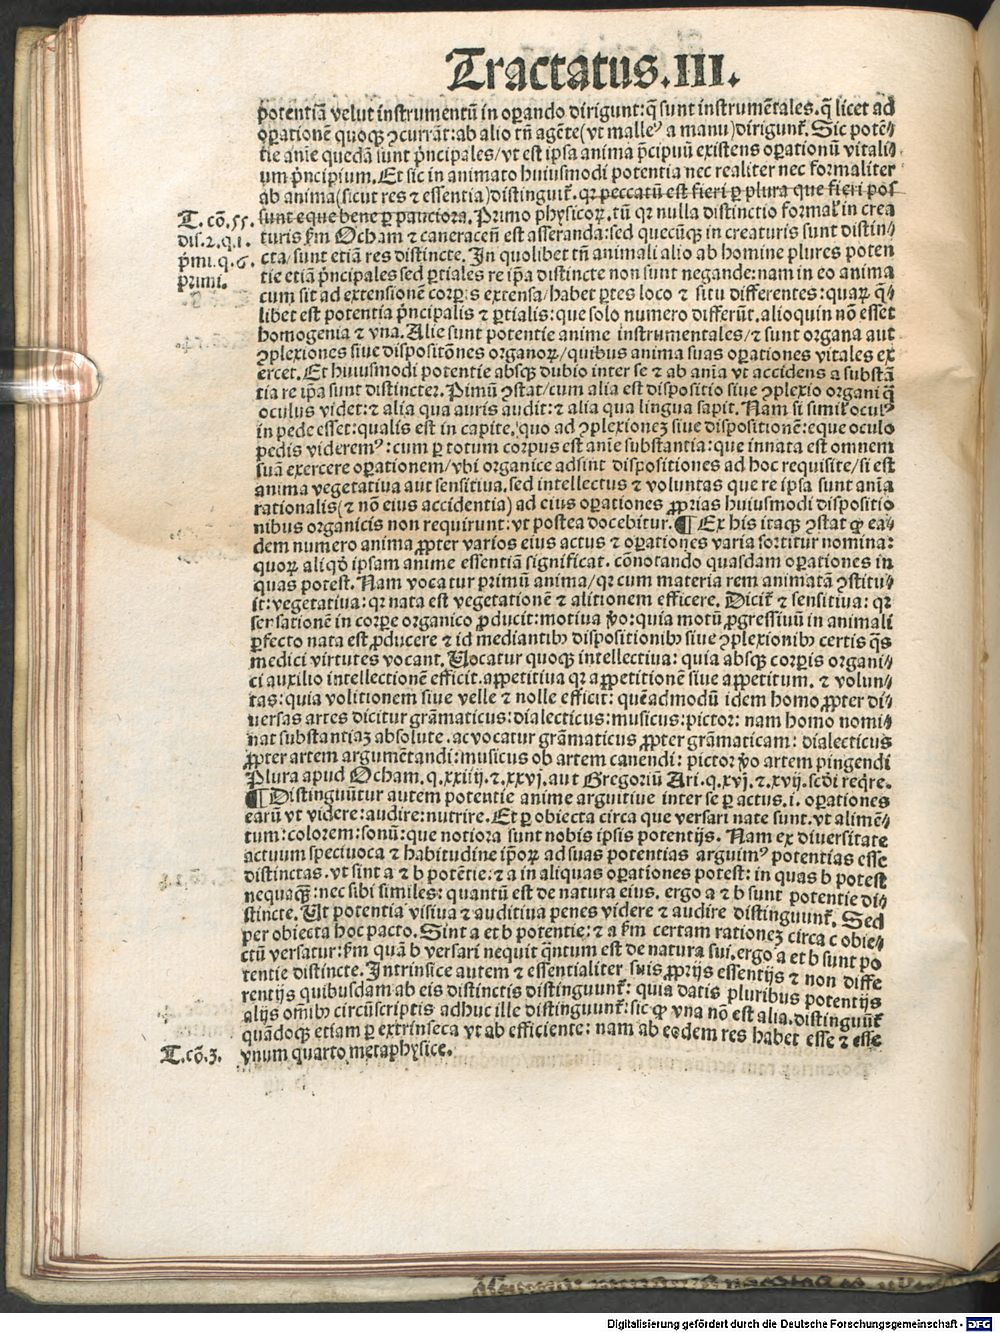 Tractatus.III.
potentiã velut instrumentũ in oꝑando dirigunt: q̃ sunt instrumẽtales. q̃ licet ad
oꝑationẽ quoqꝫ ꝯcurrãt: ab alio tñ agẽte (vt malleꝰ a manu) dirigunt̃. Sic potẽ-
tie anĩe quedã sunt p̃ncipales/ vt est ipsa anima p̃cipuũ existens oꝑationũ vitali-
um p̃ncipium. Et sic in animato huiusmodi potentia nec realiter nec formaliter
ab anima (sicut res ⁊ essentia) distinguit̃. qꝛ peccatũ est fieri ꝑ plura que fieri pos
T. cõ. 55. sunt eque bene ꝑ pauciora. Primo physicoꝝ. tũ qꝛ nulla distinctio formal̃ in crea
dis. 2. q. 1. turis s̃m Ocham ⁊ cameracen̄ est asseranda: sed quecũqꝫ in creaturis sunt distin-
p̃mi. q. 6. cta/ sunt etiã res distincte. In quolibet tñ animali alio ab homine plures poten
primi. tie etiã p̃ncipales sed ꝑtiales re ip̃a distincte non sunt negande: nam in eo anima
cum sit ad extensionẽ corꝑis extensa/ habet ꝑtes loco ⁊ situ differentes: quaꝝ q̃-
libet est potentia p̃ncipalis ⁊ ꝑtialis: que solo numero differũt. alioquin nõ esset
homogenia ⁊ vna. Alie sunt potentie anime instrumentales/ ⁊ sunt organa aut
ꝯplexiones siue dispositõnes organoꝝ/ quibus anima suas oꝑationes vitales ex
ercet. Et huiusmodi potentie absqꝫ dubio inter se ⁊ ab anĩa vt accidens a substã
tia re ip̃a sunt distincte. Pimũ ꝯstat/ cum alia est dispositio siue ꝯplexio organi q̃
oculus videt: ⁊ alia qua auris audit: ⁊ alia qua lingua sapit. Nam si simil̃ oculꝰ
in pede esset: qualis est in capite, quo ad ꝯplexionez siue dispositionẽ: eque oculo
pedis videremꝰ: cum ꝑ totum corpus est anĩe substantia: que innata est omnem
suã exercere oꝑationem/ vbi organice adsint dispositiones ad hoc requisite/ si est
anima vegetatiua aut sensitiua. sed intellectus ⁊ voluntas que re ipsa sunt anĩa
rationalis (⁊ nõ eius accidentia) ad eius oꝑationes ꝓprias huiusmodi dispositio
nibus organicis non requirunt: vt postea docebitur. ¶ Ex his itaqꝫ ꝯstat ꝙ ea-
dem numero anima ꝓpter varios eius actus ⁊ oꝑationes varia sortitur nomina:
quoꝝ aliqđ ipsam anime essentiã significat. cõnotando quasdam oꝑationes in
quas potest. Nam vocatur primũ anima/ qꝛ cum materia rem animatã ꝯstitu-
it: vegetatiua: qꝛ nata est vegetationẽ ⁊ alitionem efficere. Dicit̃ ⁊ sensitiua: qꝛ
sensationẽ in corꝑe organico ꝓducit: motiua ṽo: quia motũ ꝓgressiuũ in animali
ꝑfecto nata est ꝓducere ⁊ id mediantibꝫ dispositionibꝫ siue ꝯplexionibꝫ certis q̃s
medici virtutes vocant. Uocatur quoqꝫ intellectiua: quia absqꝫ corꝑis organi-
ci auxilio intellectionẽ efficit. appetitiua qꝛ appetitionẽ siue appetitum. ⁊ volun-
tas: quia volitionem siue velle ⁊ nolle efficit: quẽadmodũ idem homo ꝓpter di-
uersas artes dicitur grãmaticus: dialecticus: musicus: pictor: nam homo nomi-
nat substantiaz absolute. ac vocatur grãmaticus ꝓpter grãmaticam: dialecticus
ꝓpter artem argumẽtandi: musicus ob artem canendi: pictor ṽo artem pingendi
Plura apud Ocham. q. xxiiij. ⁊. xxvj. aut Gregoriũ Ari. q. xvj. ⁊. xvij. scđi reqͥre.
¶ Distinguũtur autem potentie anime arguitiue inter se ꝑ actus. i. oꝑationes
earũ vt videre: audire: nutrire. Et ꝑ obiecta circa que versari nate sunt. vt alimẽ-
tum: colorem: sonũ: que notiora sunt nobis ipsis potentijs. Nam ex diuersitate
actuum speciuoca ⁊ habitudine ip̃oꝝ ad suas potentias arguimꝰ potentias esse
distinctas. vt sint a ⁊ b potẽtie: ⁊ a in aliquas oꝑationes potest: in quas b potest
nequaqꝫ: nec sibi similes: quantũ est de natura eius. ergo a ⁊ b sunt potentie di-
stincte. Ut potentia visiua ⁊ auditiua penes videre ⁊ audire distinguunt̃. Sed
per obiecta hoc pacto. Sint a et b potentie: ⁊ a s̃m certam rationez circa c obie-
ctũ versatur: s̃m quã b versari nequit q̃ntum est de natura sui. ergo a et b sunt po
tentie distincte. Intrinsice autem ⁊ essentialiter suis ꝓprijs essentijs ⁊ non diffe
rentijs quibusdam ab eis distinctis distinguunt̃: quia datis pluribus potentijs
alijs om̃ibꝫ circũscriptis adhuc ille distinguunt̃: sic ꝙ vna nõ est alia. distinguũt̃
quãdoqꝫ etiam ꝑ extrinseca vt ab efficiente: nam ab eodem res habet esse ⁊ esse
T. cõ. 3. vnum quarto metaphysice.
Digitalisierung gefördert durch die Deutsche Forschungsgemeinschaft - DFG